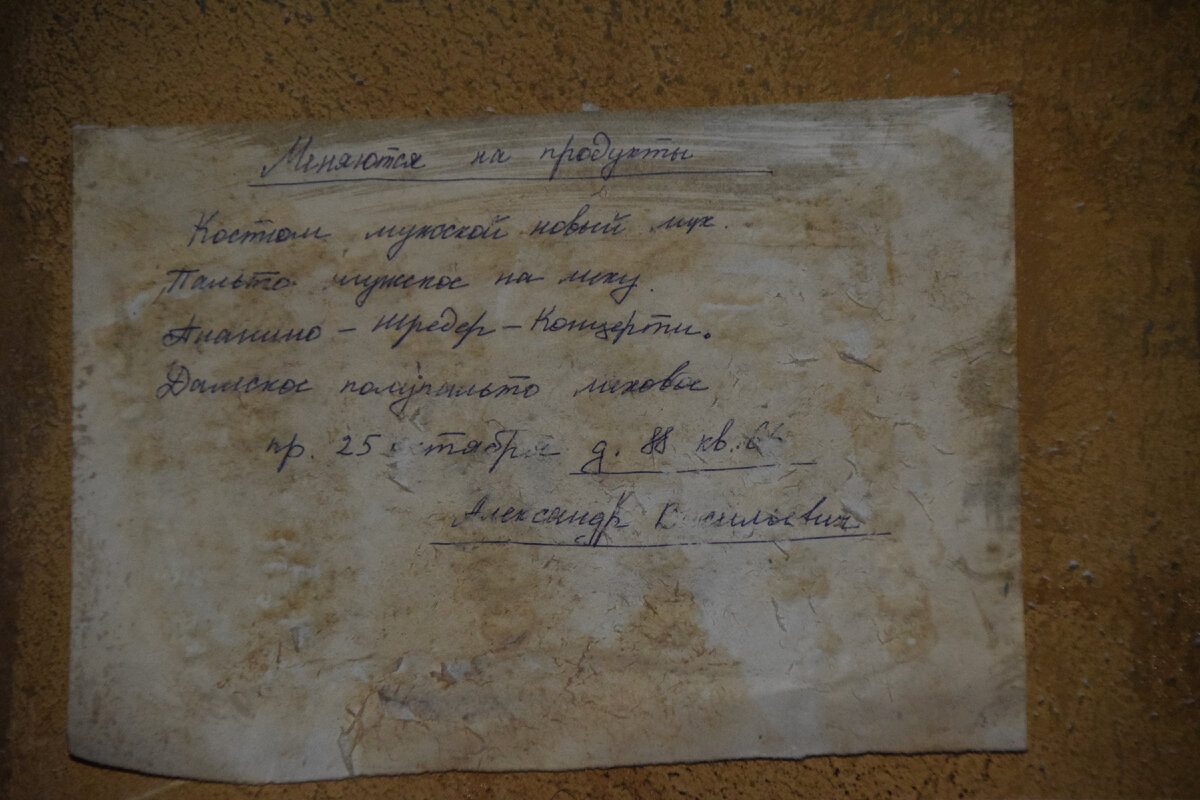 Меняются на продукты
Костюм мужской новый мук.
Пальто мужское на меху.
Пианино – Шредер – Концертн.
Дамское полупальто меховое
пр. 25 октября д. 88 кв.
Александр Васильевич